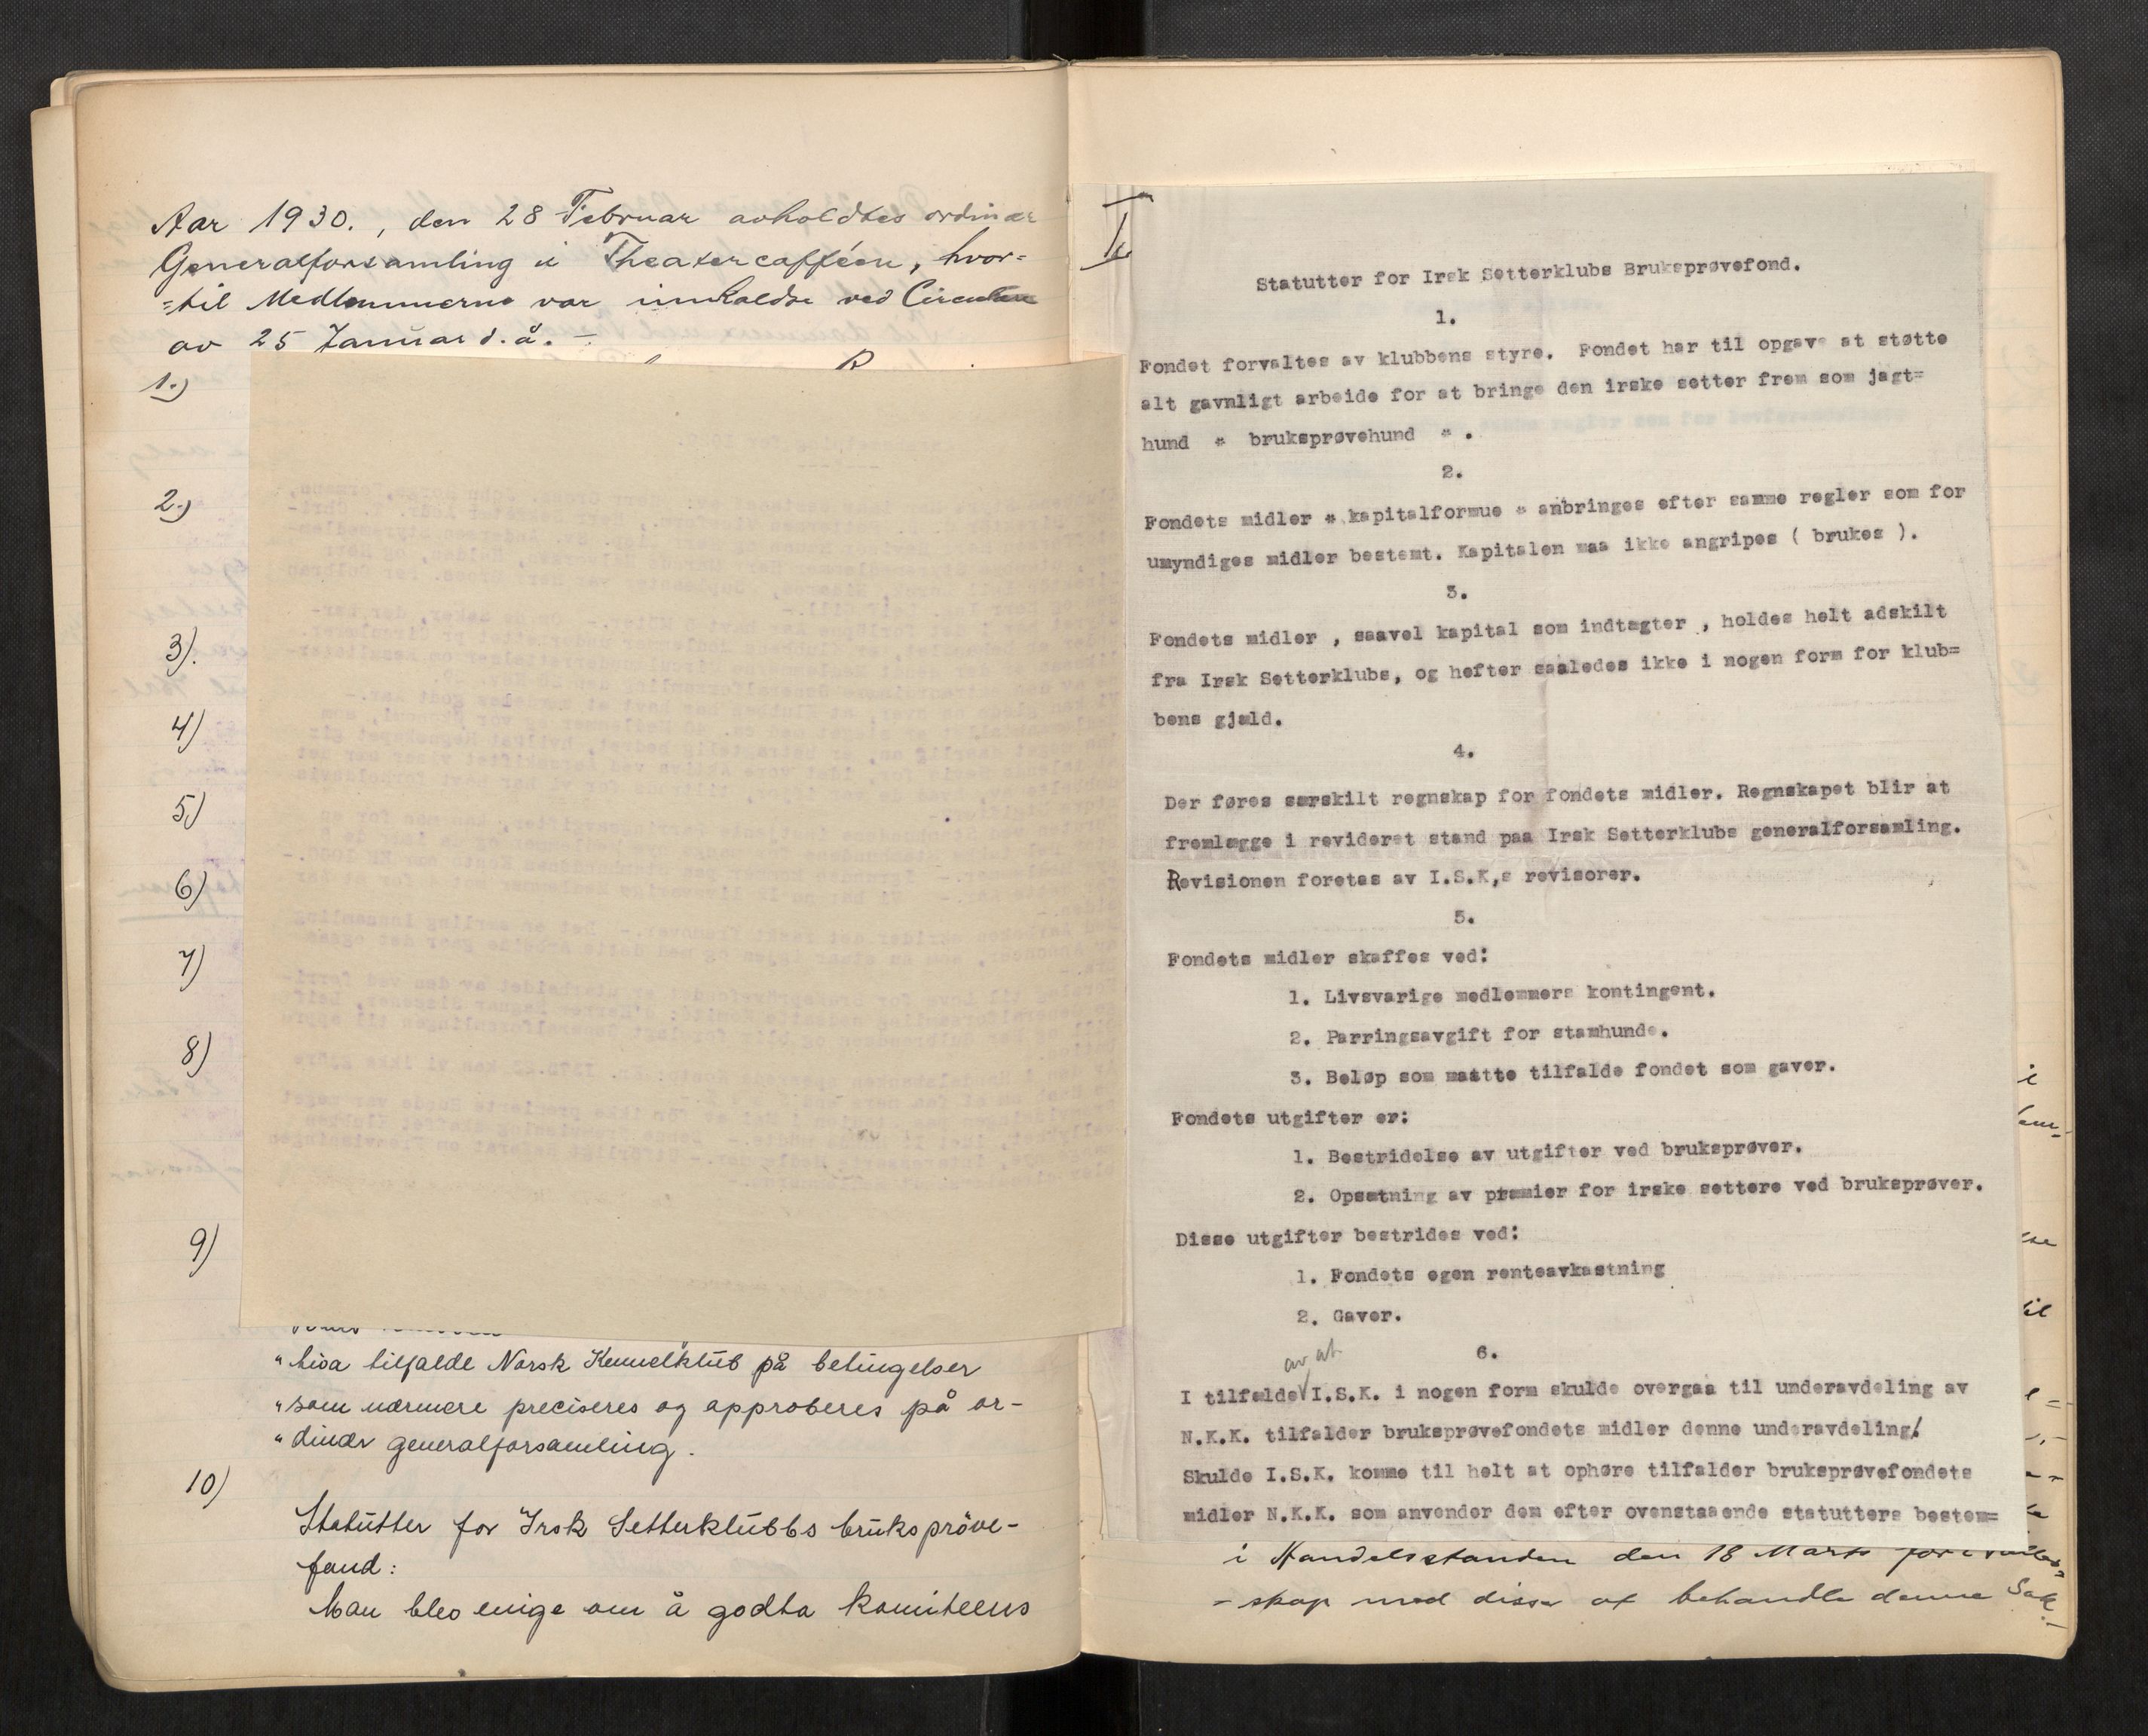 Aar 1930., den 28 Februar avholdtes ordinær
Generalforsamling i Theatercafféen, hvor=
=til Medlemmerne var innkaldt ved
av 25 Januar d. å. -
1.)
2.)
3).
4)
5)
6)
7)
8)
9)
" tisa tilfalde Norsk Kennelklub på betingelser
" som nærmere preciseres og approberes på or-
" dinær generalforsamling.
10)
Statutter for Irsk Setterklubbs brukspröve-
fond:
Man blev enige om å godta komiteens
Statutter for Irsk Setterklubs Bruksprøvefond.
1.
Fondet forvaltes av klubbens styre. Fondet har til opgave at støtte
alt gavnligt arbeide for at bringe den irske setter frem som jagt=
hund " bruksprøvehund " .
2.
Fondets midler " kapitalformue " anbringes efter samme regler som for
umyndiges midler bestemt. Kapitalen maa ikke angripes ( brukes ).
3.
Fondets midler , saavel kapital som indtægter , holdes helt adskilt
fra Irsk Setterklubs, og hefter saaledes ikke i nogen form for klub=
bens gjæld.
4.
Der føres særskilt regnskap for fondets midler. Regnskapet blir at
fremlægge i revideret stand paa Irsk Setterklubs generalforsamling.
Revisionen foretas av I.S.K,s revisorer.
5.
Fondets midler skaffes ved:
1. Livsvarige medlemmers kontingent.
2. Parringsavgift for stamhunde.
3. Beløp som maatte tilfalde fondet som gaver.
Fondets utgifter er:
1. Bestridelse av utgifter ved bruksprøver.
2. Opsætning av præmier for irske settere ved bruksprøver.
Disse utgifter bestrides ved:
1. Fondets egen renteavkastning
2. Gaver.
6.
av at
I tilfælde I.S.K. i nogen form skulde overgaa til underavdeling av
N.K.K. tilfalder bruksprøvefondets midler denne underavdeling.
Skulde I.S.K. komme til helt at ophøre tilfalder bruksprøvefondets
midler N.K.K. som anvender dem efter ovenstaaende statutters bestem=
i Handelsstanden den 18 Marts
- skap med disse at behandle denne Sak.-